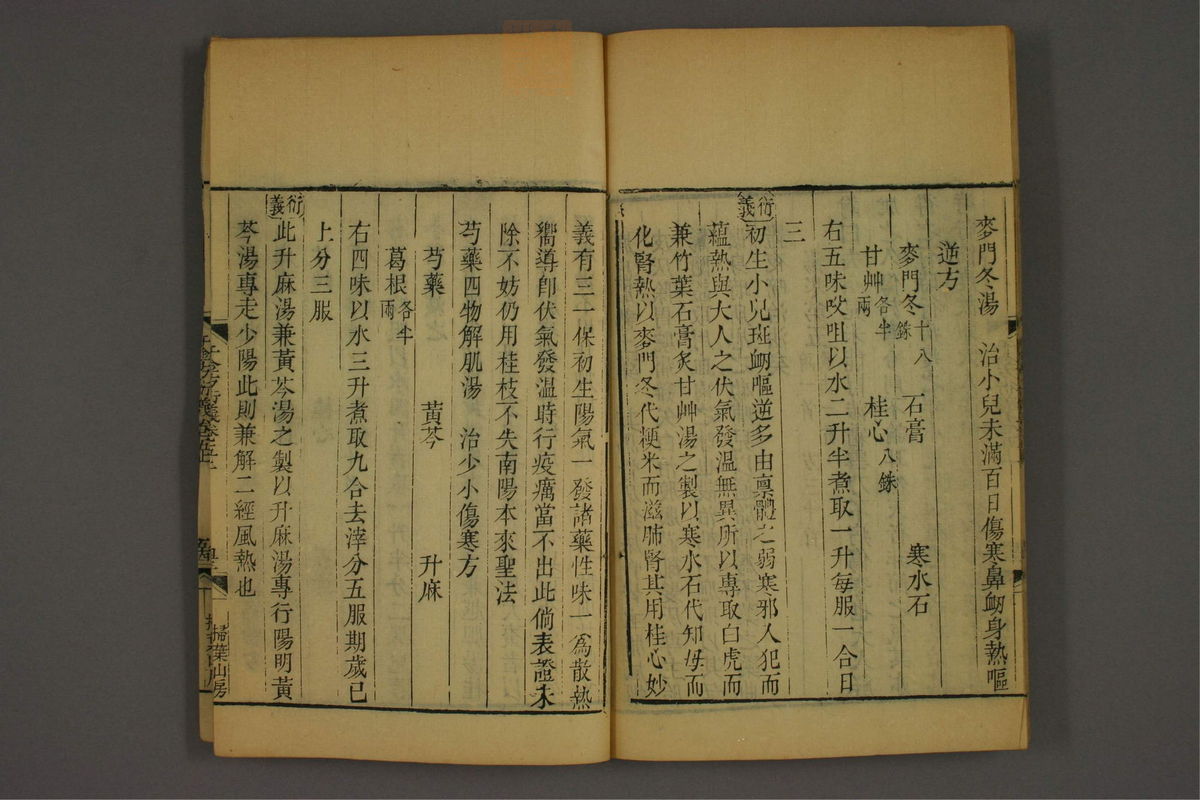 麥門冬湯　治小兒未滿百日傷寒鼻衂身熱嘔
逆方
麥門冬十八銖　石膏　寒水石
甘艸各半兩　桂心八銖
右五味㕮咀以水二升半煮取一升每服一合日
三
衍義初生小兒班衂嘔逆多由禀體之弱寒邪入犯而
蘊熱與大人之伏氣發溫無異所以專取白虎而
兼竹葉石膏炙甘艸湯之製以寒水石代知母而
化腎熱以麥門冬代粳米而滋肺腎其用桂心妙
義有三一保初生陽氣一發諸藥性味一爲散熱
嚮導卽伏氣發溫時行疫癘當不出此倘表證未
除不妨仍用桂枝不失南陽本來聖法
芍藥四物解肌湯　治少小傷寒方
芍藥　黃芩　升麻
葛根各半兩
右四味以水三升煮取九合去滓分五服期歲已
上分三服
衍義此升麻湯兼黃芩湯之製以升麻湯專行陽明黃
芩湯專走少陽此則兼解二經風熱也
掃葉山房